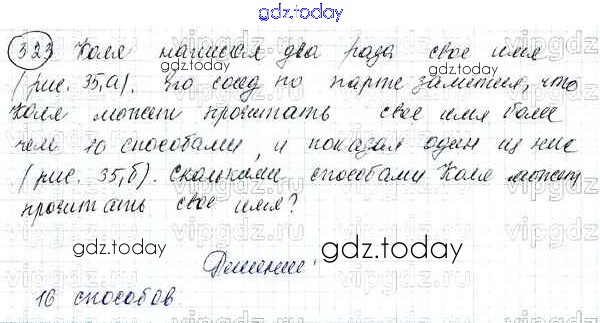 gdz.today
323 Коля написал два раза свое имя
(рис. 35,а). Его сосед по парте заметил, что
Коля может прочитать свое имя более
чем 10 способами, и показал один из них
(рис. 35,б). Сколькими способами Коля может
прочитать свое имя?
gdz.today
gdz.today
Решение:
16 способов
gdz.today